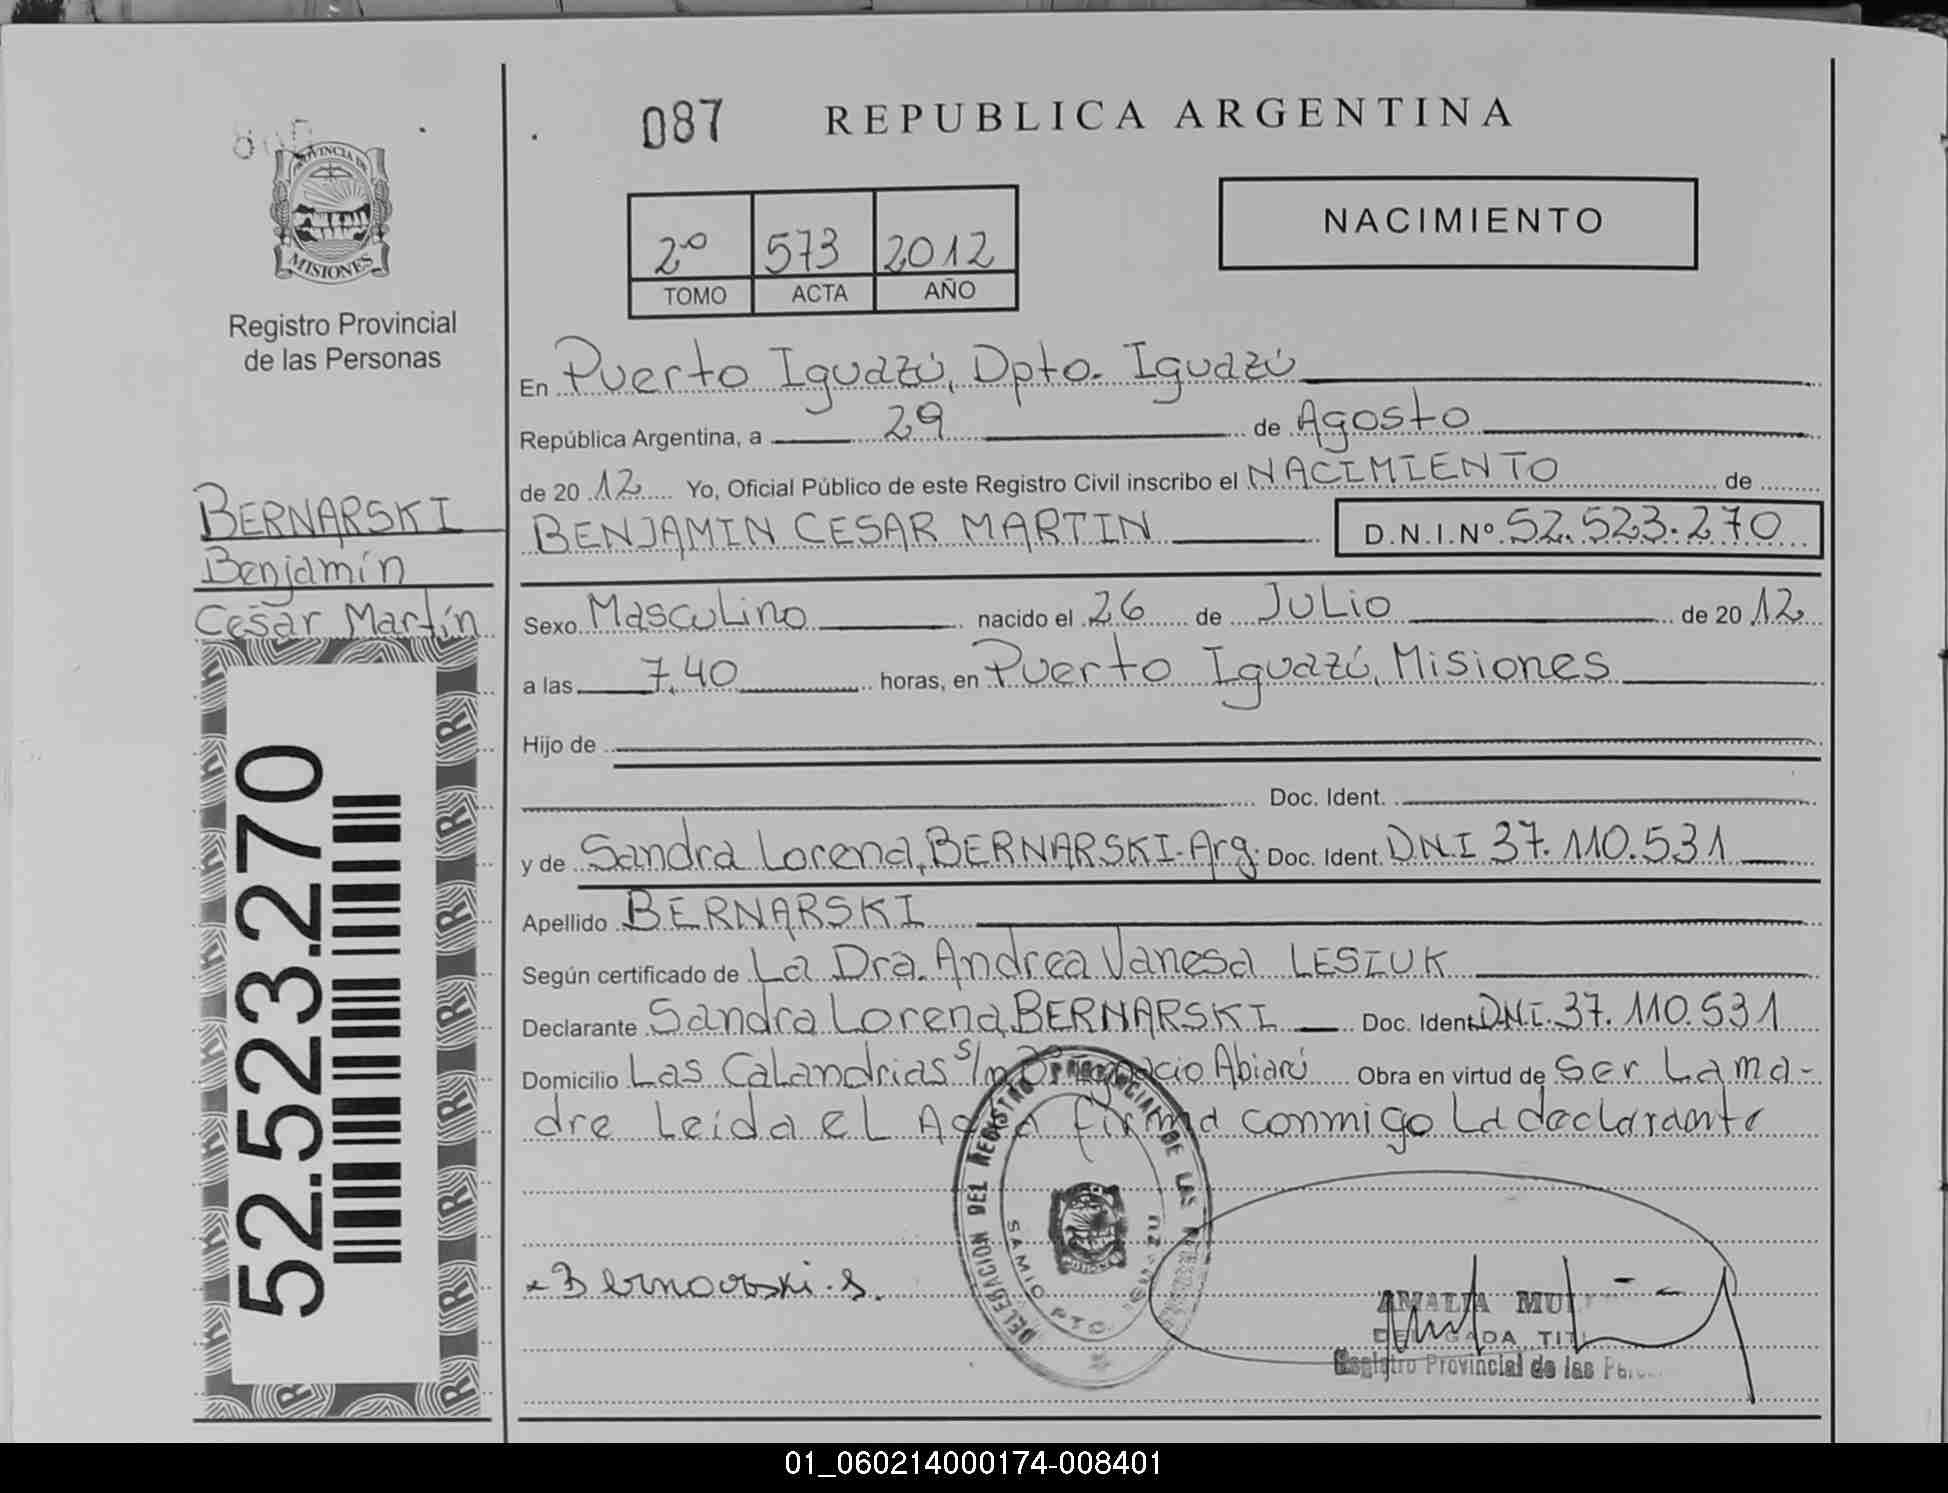 087 REPUBLICA ARGENTINA
PROVINCIA DE
MISIONES
Registro Provincial
de las Personas
2º 573 2012
TOMO ACTA AÑO
NACIMIENTO
En Puerto Iguazú, Dpto. Iguazú
República Argentina, a 29 de Agosto
de 2012 Yo, Oficial Público de este Registro Civil inscribo el NACIMIENTO de
BENJAMIN CESAR MARTIN D.N.I.Nº 52.523.270
BERNARSKI
Benjamín
Cesar Martín
52.523.270
Sexo Masculino nacido el 26 de Julio de 2012
a las 7,40 horas, en Puerto Iguazú, Misiones
Hijo de
Doc. Ident.
y de Sandra Lorena, BERNARSKI-Arg. Doc. Ident. D.N.I 37.110.531
Apellido BERNARSKI
Según certificado de La Dra. Andrea Vanesa LESIUK
Declarante Sandra Lorena BERNARSKI Doc. Ident. D.N.I. 37.110.531
Domicilio Las Calandrias s/n Abiarú Obra en virtud de ser La ma-
dre Leida el Acta firma conmigo La declarante
DELEGACION DEL REGISTRO PROVINCIAL DE LAS
PTO.
Bernarski.S.
AMALIA
Registro Provincial de las
01_060214000174-008401